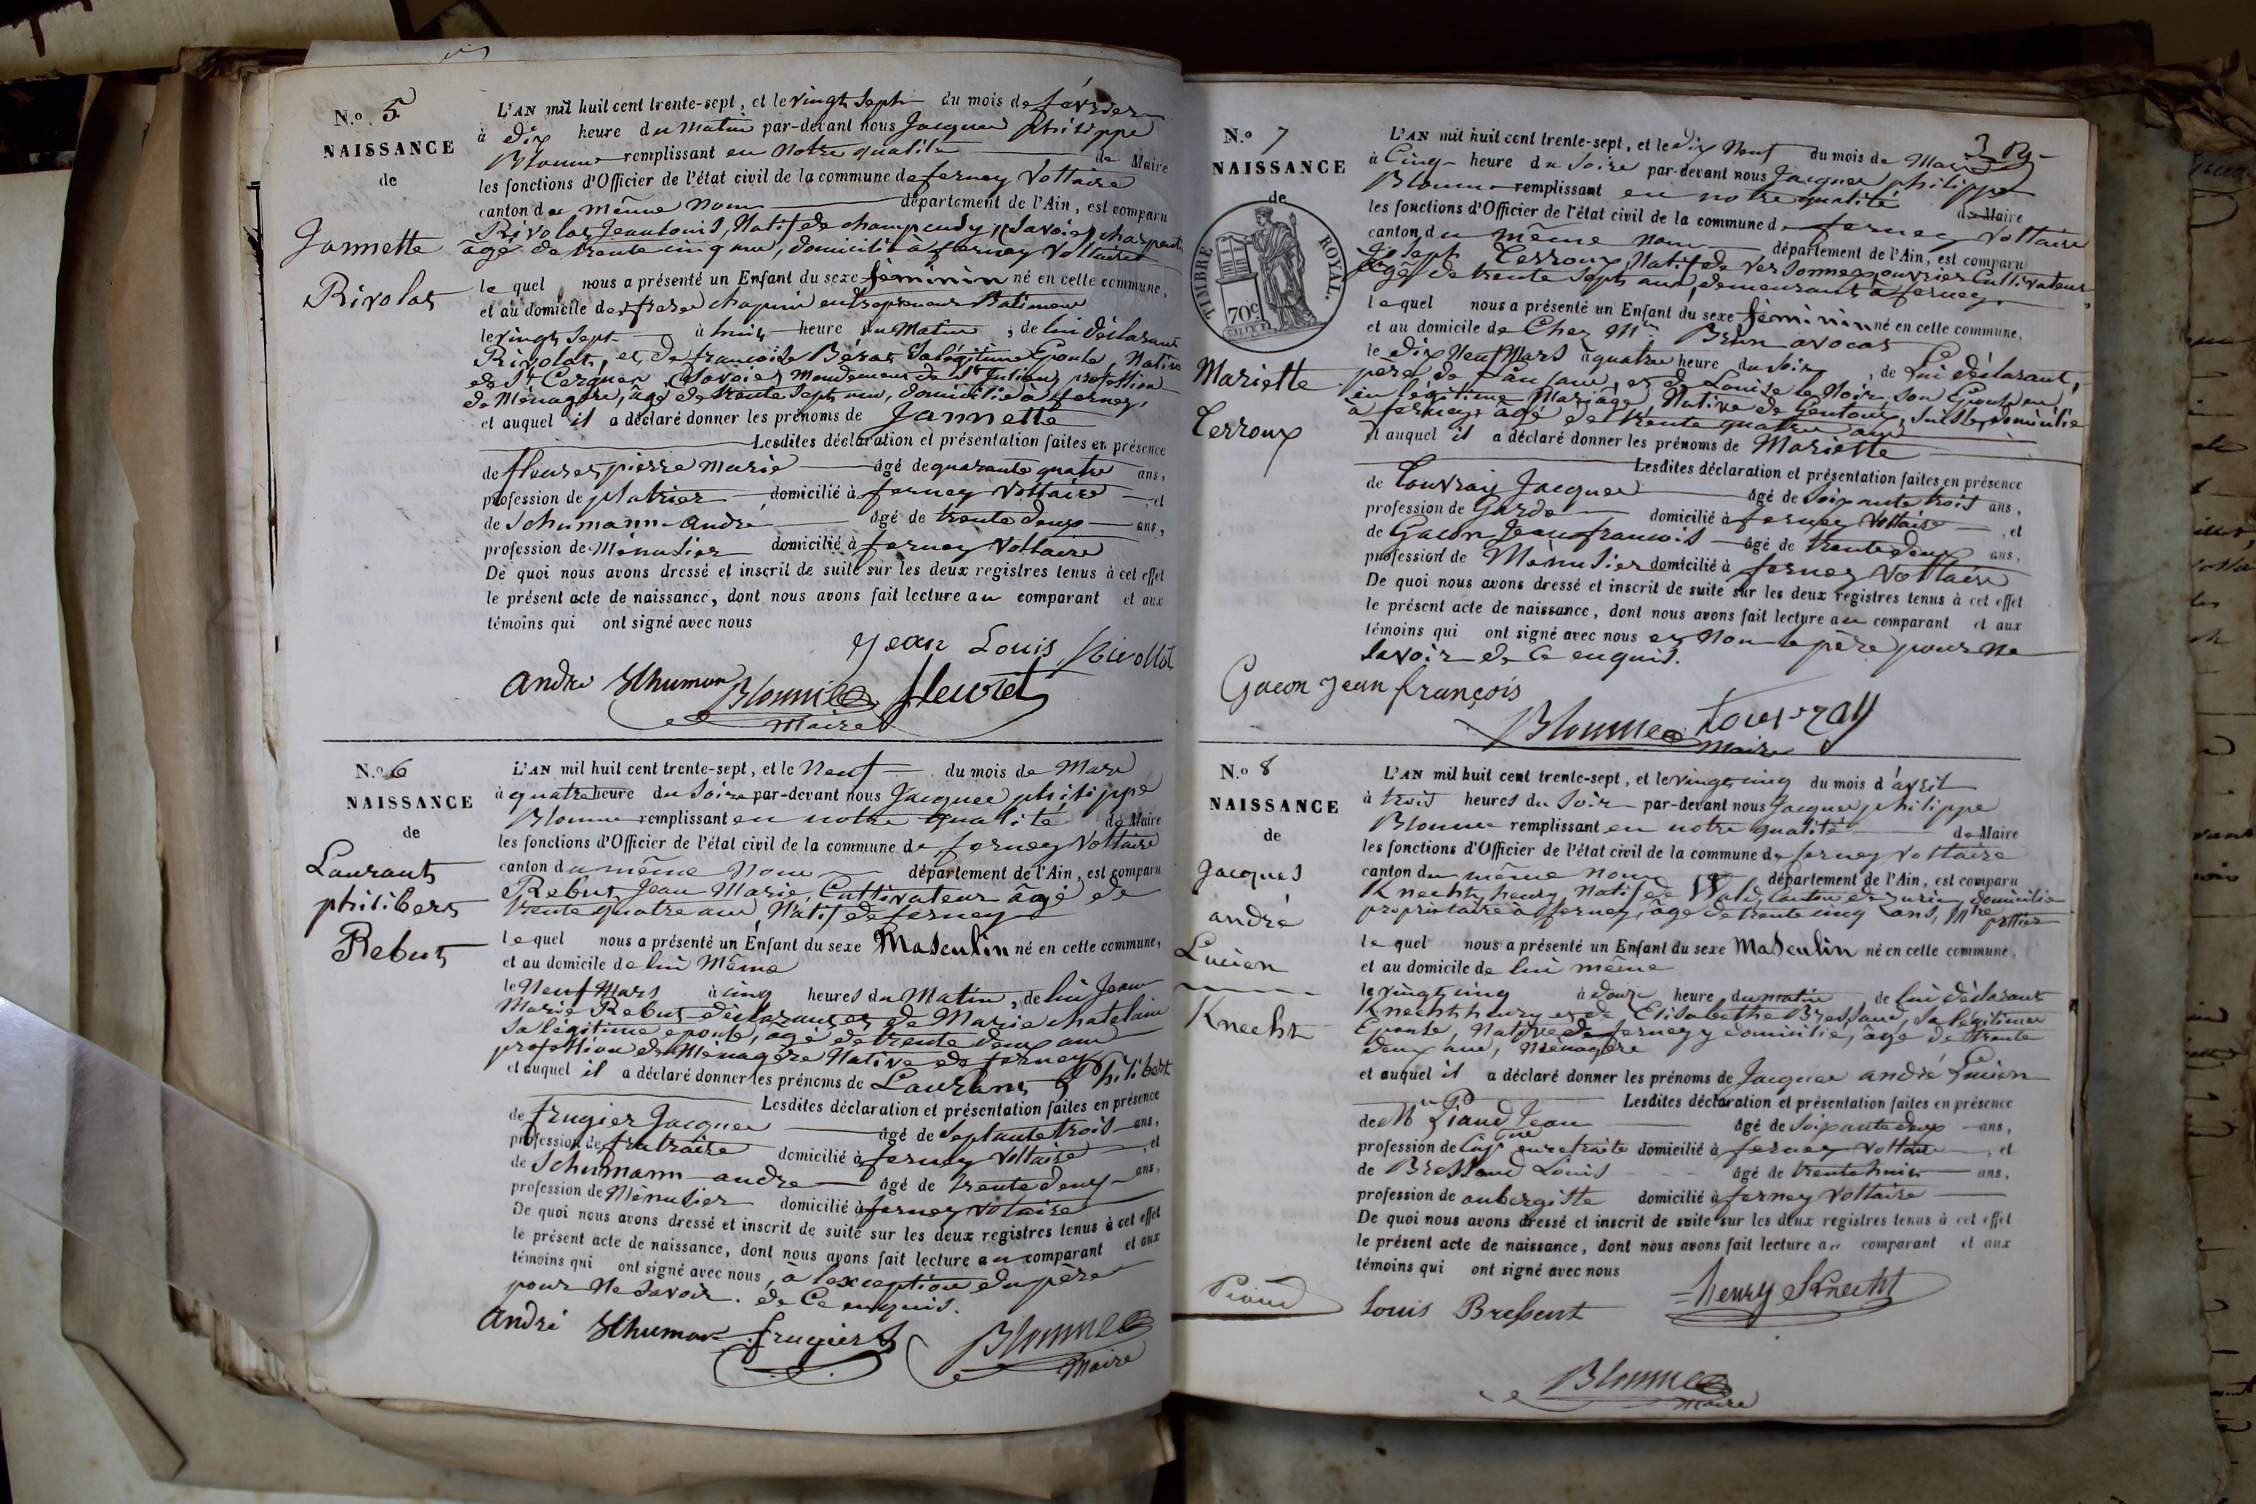 N.o 5
NAISSANCE
de
Jannette
Rivolat
L'AN mil huit cent trente-sept, et le vingt sept du mois de février
à dix heure du matin par-devant nous Jacques philippe
Blonme remplissant en notre qualité de Maire
les fonctions d'Officier de l'état civil de la commune de ferney Voltaire
canton du même nom département de l'Ain, est comparu
Rivolat, Jean Louis, Natif de champ (Savoie) charpentier
âgé de trente cinq ans, domicilié à ferney Voltaire
le quel nous a présenté un Enfant du sexe féminin né en cette commune,
et au domicile des frères chapuis entrepreneurs
le vingt sept à huit heure du Matin, de lui déclarant
Rivolat, et de francoise Bérat Sa légitime Epouse, Native
de St Cergues, (Savoie) Mandement de St Julien, profession
de Ménagère, âgé de trente sept ans, domicilié à ferney,
et auquel il a déclaré donner les prénoms de Jannette
Lesdites déclaration et présentation faites en présence
de fleuret pierre marie âgé de quarante quatre ans,
profession de platrier domicilié à ferney Voltaire, et
de Schumann andré âgé de trente deux ans,
profession de Ménusier domicilié à ferney Voltaire
De quoi nous avons dressé et inscrit de suite sur les deux registres tenus à cet effet
le présent acte de naissance, dont nous avons fait lecture au comparant et aux
témoins qui ont signé avec nous
Jean Louis Rivollat
andre Schuman Blonme fleuret
Maire
N.o 6
NAISSANCE
de
Laurant
philibert
Rebut
L'AN mil huit cent trente-sept, et le Neuf du mois de Mars
à quatre heure du Soire par-devant nous Jacques philippe
Blonme remplissant en notre qualité de Maire
les fonctions d'Officier de l'état civil de la commune de ferney Voltaire
canton du même Nom département de l'Ain, est comparu
Rebut Jean Marie, Cultivateur âgé de
trente quatre ans Natif de ferney
le quel nous a présenté un Enfant du sexe Masculin né en cette commune,
et au domicile de lui Même
le Neuf Mars à cinq heures du Matin, de lui Jean
Marie Rebut déclarant et de Marie chatelain
Sa légitime epouse, âgé de trente deux ans
profession de Ménagère Native de ferney
et auquel il a déclaré donner les prénoms de Laurant Philibert
Lesdites déclaration et présentation faites en présence
de frugier Jacques âgé de septante trois ans,
profession de domicilié à ferney Voltaire, et
de Schumann andre âgé de trente deux ans,
profession de Ménusier domicilié à ferney Votaire
De quoi nous avons dressé et inscrit de suite sur les deux registres tenus à cet effet
le présent acte de naissance, dont nous avons fait lecture au comparant et aux
témoins qui ont signé avec nous, à lexception du père
pour ne savoir de ce enquis.
André Schuman frugier Blonme
Maire
3
N.o 7
NAISSANCE
de
TIMBRE ROYAL.
70c
Mariette
Terroux
L'AN mil huit cent trente-sept, et le dix Neuf du mois de Mars
à Cinq heure du Soire par-devant nous Jacques philippe
Blonme remplissant en notre qualité de Maire
les fonctions d'Officier de l'état civil de la commune de ferney Voltaire
canton du même nom département de l'Ain, est comparu
Joseph Terroux, Natif de Versonnex ouvrier Cultivateur,
âgé de trente sept ans, demeurant à ferney.
le quel nous a présenté un Enfant du sexe féminin né en cette commune,
et au domicile de Chez Mr Brun avocat
le dix Neuf Mars à quatre heure du Soir, de Lui déclarant,
père de l'enfant, et de Louise le Noir, son Epouse en
légitime Mariage, Native de Gentoux, Suisse, domicilié
à ferney, âgé de trente quatre ans
et auquel il a déclaré donner les prénoms de Mariette
Lesdites déclaration et présentation faites en présence
de Touvray Jacques âgé de soixante trois ans,
profession de Garde domicilié à ferney Voltaire, et
de Gacon Jean francois âgé de trente deux ans,
profession de Ménusier domicilié à ferney Voltaire
De quoi nous avons dressé et inscrit de suite sur les deux registres tenus à cet effet
le présent acte de naissance, dont nous avons fait lecture au comparant et aux
témoins qui ont signé avec nous et Non le père pour Ne
Savoir de ce enquis.
Gacon Jean françois
Blonme Touvray
Maire
N.o 8
NAISSANCE
de
Jacques
andré
Lucien
Knecht
L'AN mil huit cent trente-sept, et le vingt cinq du mois d'avril
à trois heures du Soir par-devant nous Jacques philippe
Blonme remplissant en notre qualité de Maire
les fonctions d'Officier de l'état civil de la commune de ferney Voltaire
canton du même nom département de l'Ain, est comparu
Knecht henry, Natif de Wald, canton de Zurig, domicilié
propriétaire à ferney, âgé de trente cinq ans, Mtre potier
le quel nous a présenté un Enfant du sexe Masculin né en cette commune,
et au domicile de lui même
le vingt cinq à douze heure du matin, de lui déclarant
Knecht henry et de Elisabethe Bressand, Sa légitime
Epouse, Native de ferney y domicilié, âgé de trente
deux ans, Ménagère
et auquel il a déclaré donner les prénoms de Jacques andré Lucien
Lesdites déclaration et présentation faites en présence
de Mr Piaud Jean âgé de soixante deux ans,
profession de Capne en retraite domicilié à ferney Voltaire, et
de Bressand Louis âgé de trente huit ans,
profession de aubergiste domicilié à ferney Voltaire
De quoi nous avons dressé et inscrit de suite sur les deux registres tenus à cet effet
le présent acte de naissance, dont nous avons fait lecture au comparant et aux
témoins qui ont signé avec nous
Piaud Louis Bressent henry Knecht
Blonme
Maire